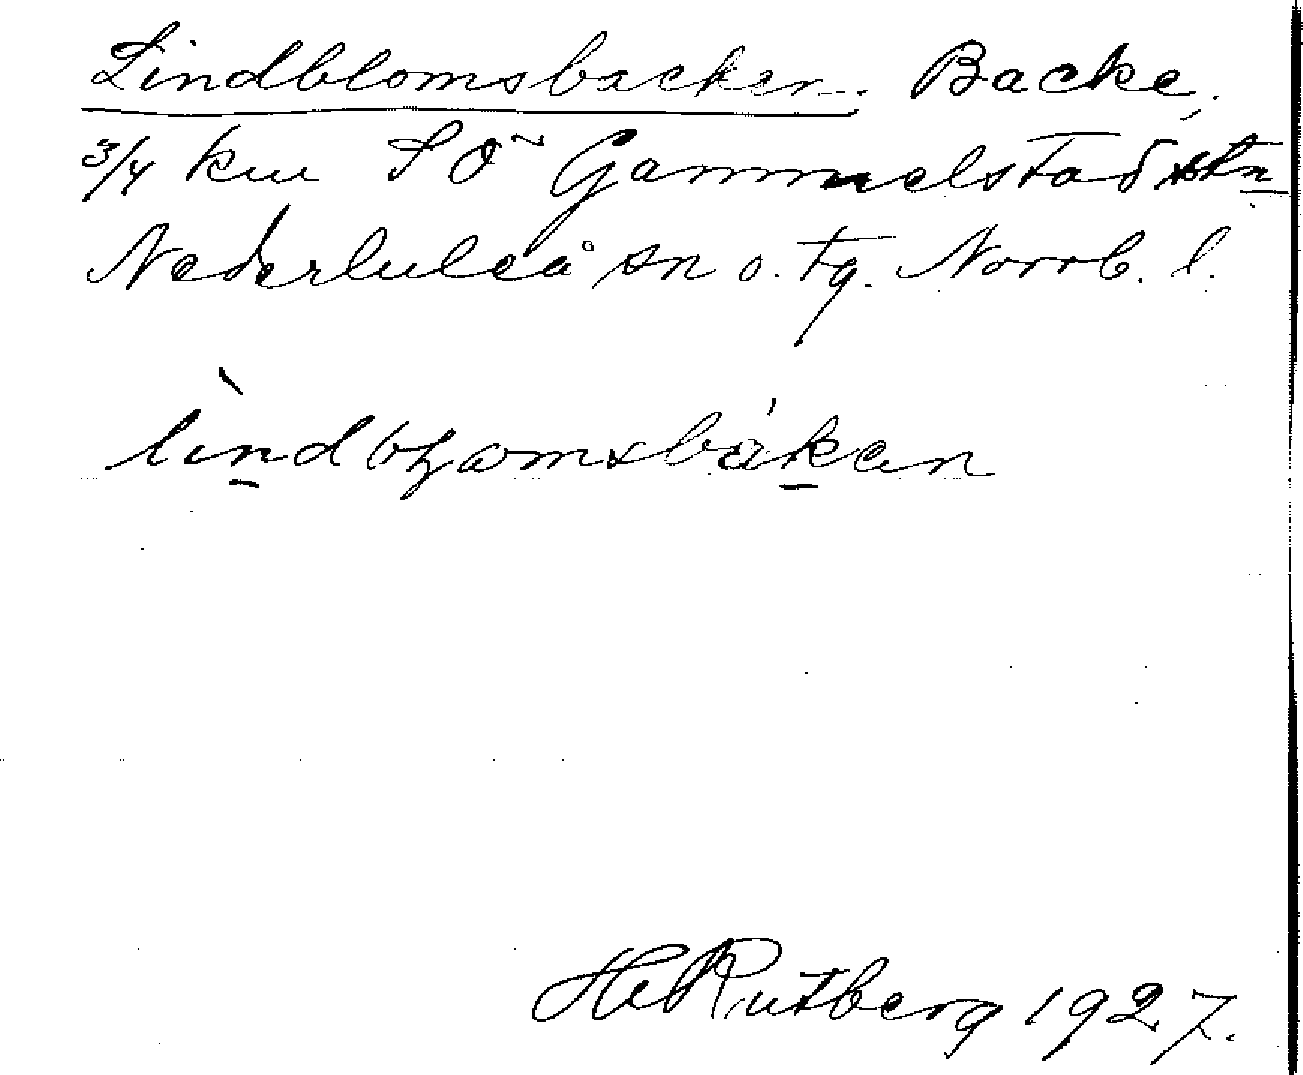 Lindblomsbacken. Backe,
3/4 km SÖ Gammelstad stn
Nederluleå sn o. tg. Norrb. l.
lìndbɽomsbákan
H Rutberg 1927.